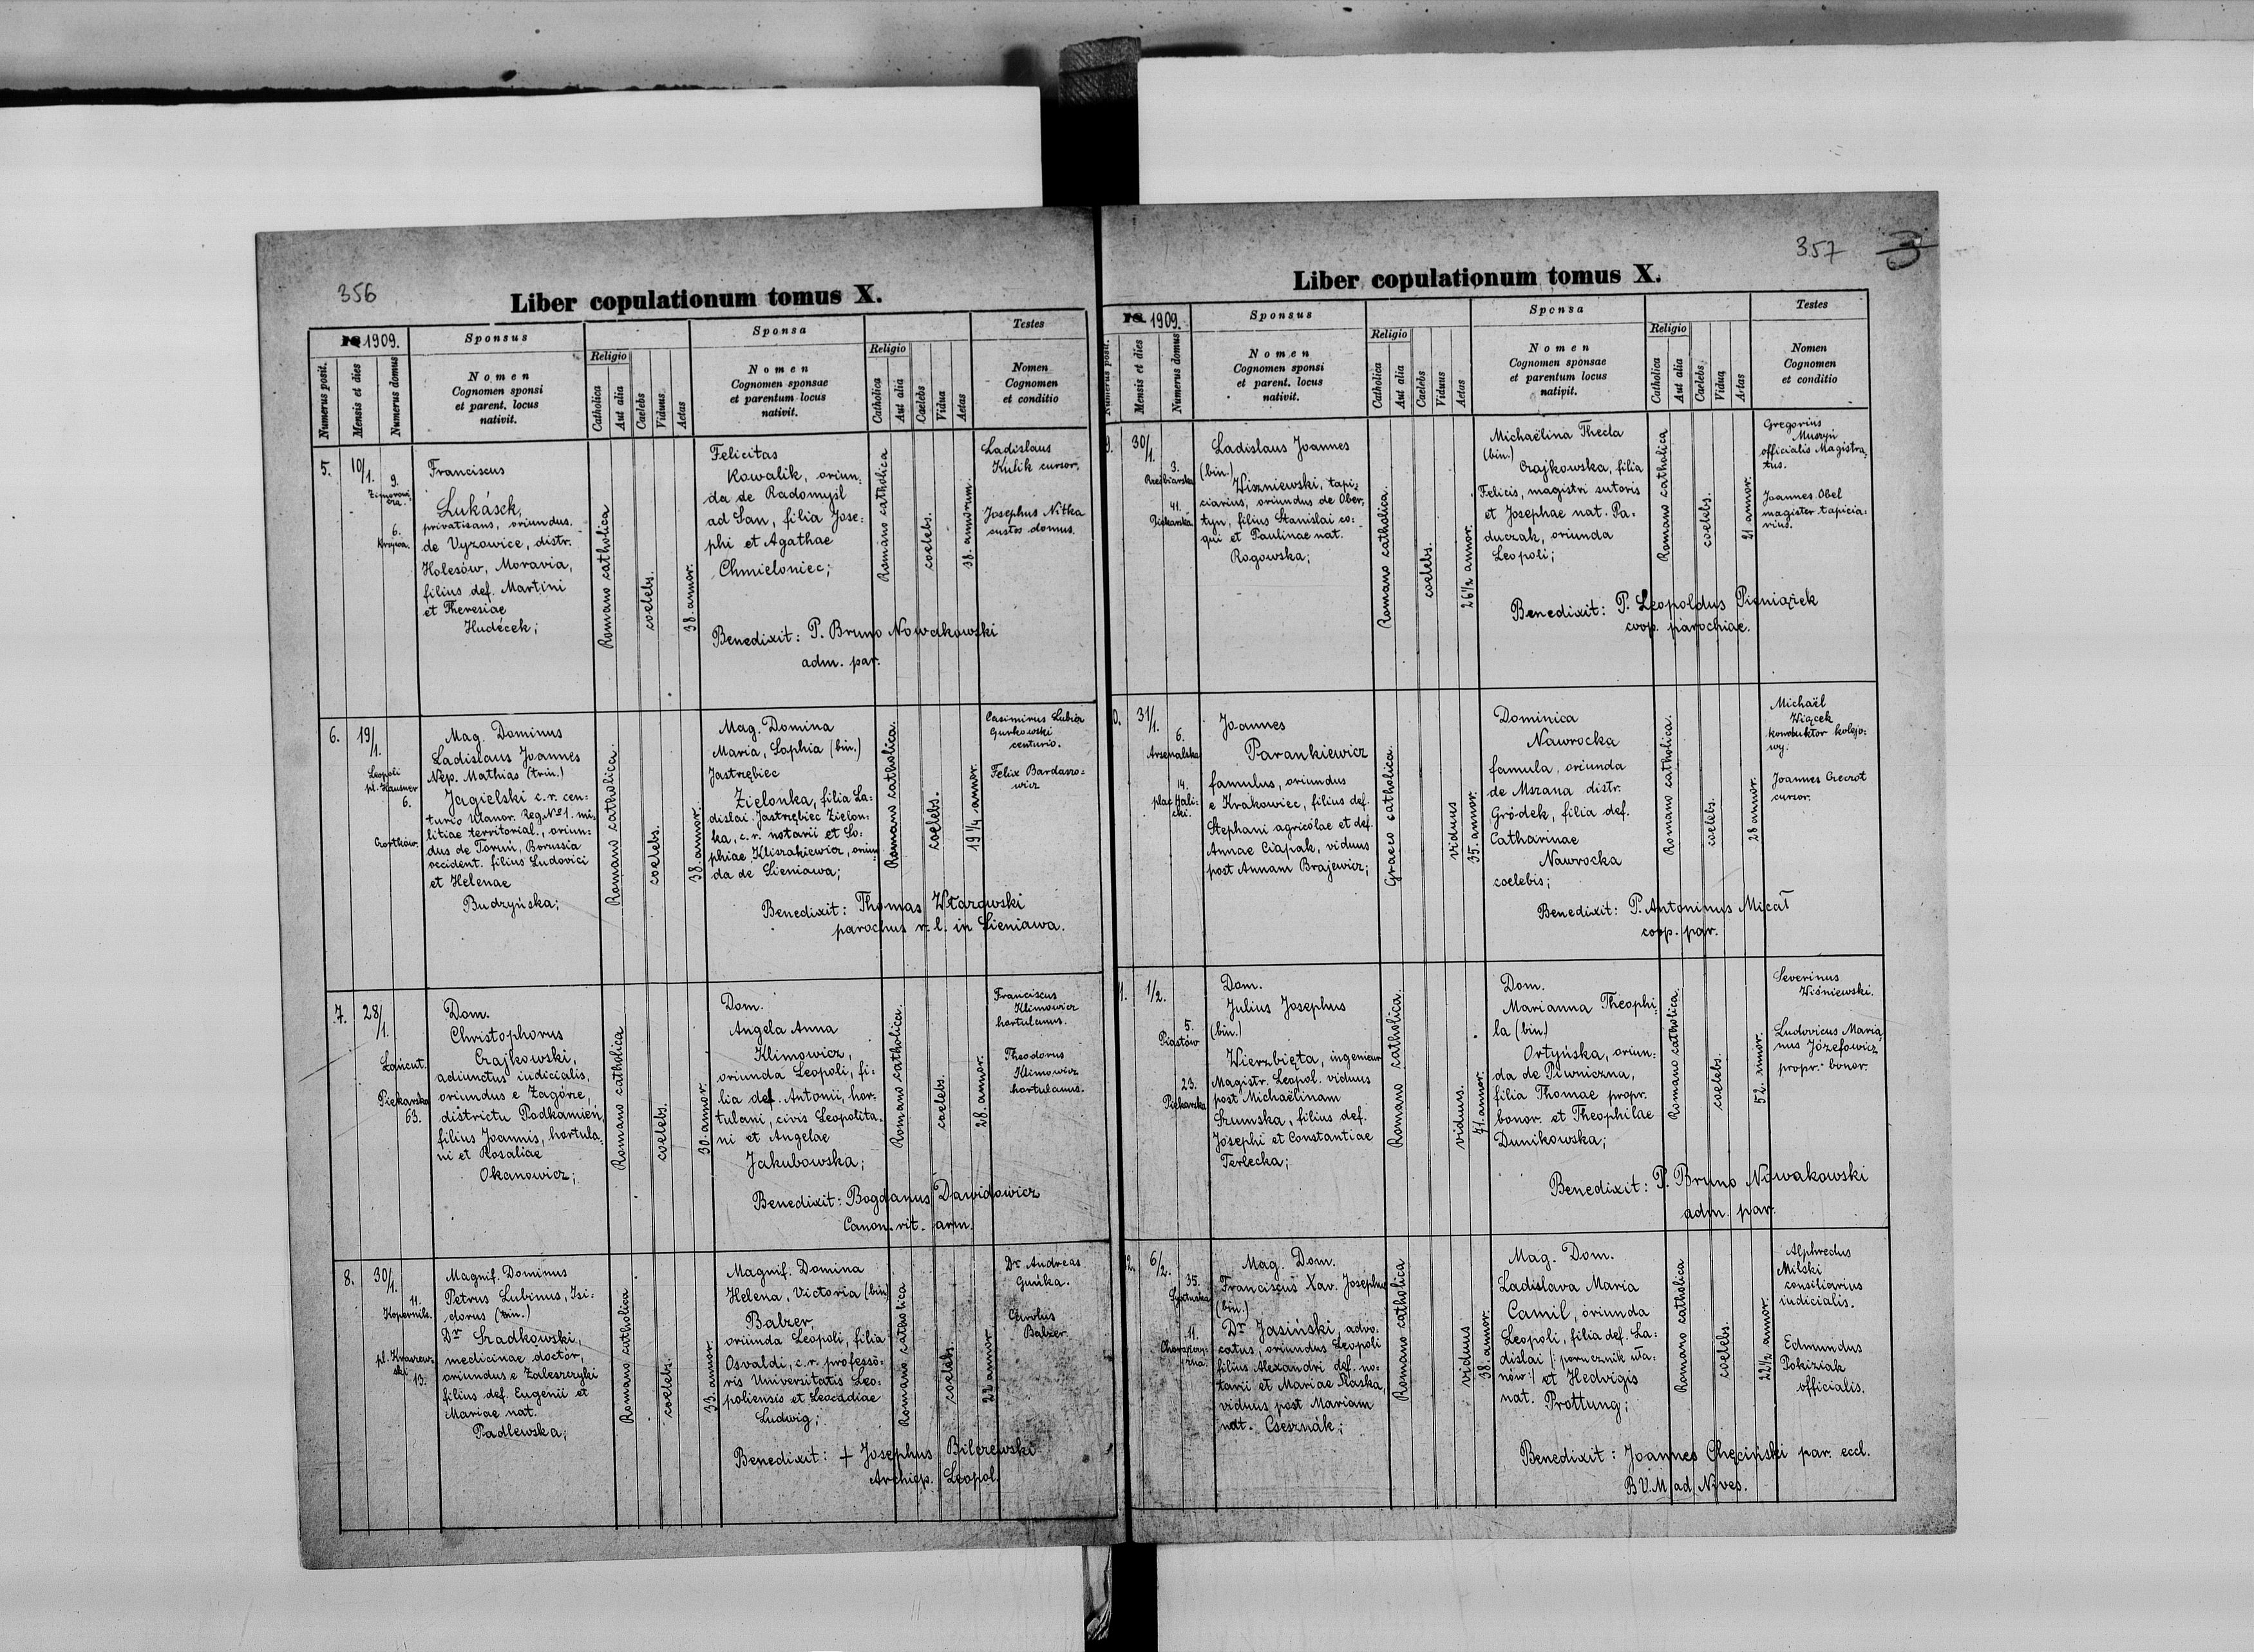 356
Liber copulationum tomus X.
1909.
Sponsus
Sponsa
Testes
Numerus posit.
Mensis et dies
Numerus domus
Nomen
Cognomen sponsi
et parent. locus
nativit.
Religio
Catholica
Aut alia
Caelebs
Viduus
Aetas
Nomen
Cognomen sponsae
et parentum locus
nativit.
Religio
Catholica
Aut alia
Caelebs
Vidua
Aetas
Nomen
Cognomen
et conditio
5.
10/1.
9.
6.
Franciscus
Lukásek,
privatisans, oriundus
de Vyzowice, distr.
Holesów, Moravia,
filius def. Martini
et Theresiae
Hudécek;
Romano catholica
coelebs.
38. annor.
Felicitas
Kowalik, oriun-
da de Radomyśl
ad San, filia Jose-
phi et Agathae
Chmieloniec;
Romano catholica
coelebs.
38. annorum.
Ladislaus
Kulik cursor.
Josephus Nitka
custos domus.
Benedixit: P. Bruno Nowakowski
adm. par.
6.
19/1.
Leopoli
pl. Hausner
6.
Czortków.
Mag. Dominus
Ladislaus Joannes
Nep. Mathias (trin.)
Jagielski c.r. cen-
turio Ulanor. Reg. No 1. mi-
litiae territorial., oriun-
dus de Toruń, Borussia
occident. filius Ludovici
et Helenae
Budzyńska;
Romano catholica.
coelebs.
38. annor.
Mag. Domina
Maria, Sophia (bin.)
Jastrzębiec
Zielonka, filia La-
dislai Jastrzębiec Zielon-
ka, c.r. notarii et So-
phiae Kliszakiewicz, oriun-
da de Sieniawa;
Romano catholica.
coelebs.
19 1/4 annor.
Casimirus Lubicz
Gurkowski
centurio.
Felix Bardano-
wicz
Benedixit: Thomas Włazowski
parochus r. l. in Sieniawa.
7.
28/1.
Łańcut.
Piekarska
63.
Dom.
Christophorus
Czajkowski,
adiunctus iudicialis,
oriundus e Zagórze,
districtu Podkamień,
filius Joannis, hortula-
ni et Rosaliae
Okanowicz;
Romano catholica
coelebs.
30. annor.
Dom.
Angela Anna
Klimowicz,
oriunda Leopoli, fi-
lia def. Antonii, hor-
tulani, civis Leopolita-
ni et Angelae
Jakubowska;
Romano catholica.
coelebs.
28. annor.
Franciscus
Klimowicz
hortulanus.
Theodorus
Klimowicz
hortulanus.
Benedixit: Bogdanus Dawidowicz
Canon. rit. arm.
8.
30/1.
11.
Kopernik.
13.
Magnif. Dominus
Petrus Lubinus, Isi-
dorus (trin.)
Dr Szadkowski,
medicinae doctor,
oriundus e Zaleszczyki
filius def. Eugenii et
Mariae nat.
Padlewska;
Romano catholica
coelebs.
33. annor.
Magnif. Domina
Helena, Victoria (bin)
Balzer,
oriunda Leopoli, filia
Osvaldi, c.r. professo-
ris Universitatis Leo-
poliensis et Leocadiae
Ludwig;
Romano catholica
coelebs.
22 annor.
Dr Andreas
Gońka.
Carolus
Balzer.
Benedixit: + Josephus Bilczewski
Archiep. Leopol.
357
Liber copulationum tomus X.
1909.
Sponsus
Sponsa
Testes
Numerus posit.
Mensis et dies
Numerus domus
Nomen
Cognomen sponsi
et parent. locus
nativit.
Religio
Catholica
Aut alia
Caelebs
Viduus
Aetas
Nomen
Cognomen sponsae
et parentum locus
natipit.
Religio
Catholica
Aut alia
Caelebs
Vidua
Aetas
Nomen
Cognomen
et conditio
9.
30/1.
3.
Rzeźbiarska
41.
Piekarska
Ladislaus Joannes
(bin.)
Wiszniewski, tapi-
ciarius, oriundus de Ober-
tyn, filius Stanislai co-
qui et Paulinae nat.
Rogowska;
Romano catholica.
coelebs.
26 1/2 annor.
Michaëlina Thecla
(bin.)
Czajkowska, filia
Felicis, magistri sutoris
et Josephae nat. Pa-
duczak, oriunda
Leopoli;
Romano catholica
coelebs.
21 annor.
Gregorius
officialis Magistra-
tus.
Joannes Obel
magister tapicia-
rius.
Benedixit: P. Leopoldus Pieniążek
coop. parochiae.
0.
31/1.
6.
Arsenalska
14.
plac Hali-
cki.
Joannes
Parankiewicz
famulus, oriundus
e Krakowiec, filius def.
Stephani agricolae et def.
Annae Ciapak, viduus
post Annam Brajewicz;
Graeco catholica.
viduus
35. annor.
Dominica
Nawrocka
famula, oriunda
de Mszana distr.
Gródek, filia def.
Catharinae
Nawrocka
coelebis;
Romano catholica.
coelebs.
28 annor.
Michaël
Wiącek
konduktor kolejo-
wy.
Joannes Czeczot
cursor.
Benedixit: P. Antoninus Micał
coop. par.
1.
1/2.
5.
Piastów
23.
Piekarska
Dom.
Julius Josephus
(bin.)
Wierzbięta, ingenieur
Magistr. Leopol. viduus
post Michaëlinam
Szumska, filius def.
Josephi et Constantiae
Terlecka;
Romano catholica.
viduus.
41. annor.
Dom.
Marianna Theophi-
la (bin)
Ortyńska, oriun-
da de Piwniczna,
filia Thomae propr.
bonor. et Theophilae
Dunikowska;
Romano catholica.
coelebs.
52. annor.
Severinus
Wiśniewski.
Ludovicus Maria-
nus Józefowicz
propr. bonor.
Benedixit: P. Bruno Nowakowski
adm. par.
2.
6/2.
35.
Sykstuska
11.
Mag. Dom.
Franciscus Xav. Josephus
(bin.)
Dr Jasiński, advo-
catus, oriundus Leopoli
filius Alexandri def. no-
tarii et Mariae Płaska,
viduus post Mariam
nat. Csesznák;
Romano catholica
viduus
38. annor.
Mag. Dom.
Ladislava Maria
Camil, oriunda
Leopoli, filia def. La-
dislai /: porucznik uła-
nów :/ et Hedvigis
nat. Prottung;
Romano catholica
coelebs.
22 1/2 annor.
Alphredus
Milski
consiliarius
iudicialis.
Edmundus
Pokiziak
officialis.
Benedixit: Joannes Chęciński par. eccl.
B.V.M ad Nives.